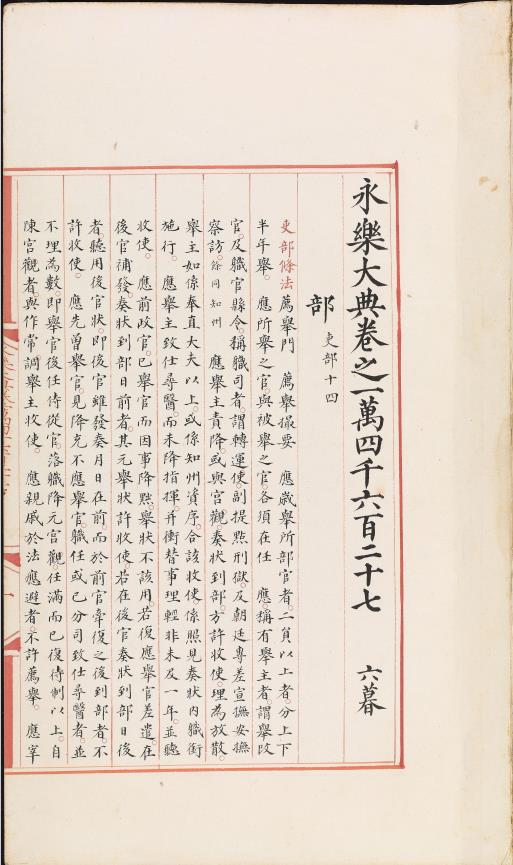 永樂大典卷之一萬四千六百二十七 六暮
部 吏部十四
吏部條法 薦舉門 薦舉撮要 應歲舉所部官者二員以上者分上下
半年舉。 應所舉之官與被舉之官各須在任 應稱有舉主者謂舉改
官及職官縣令。稱職司者謂轉運使副提㸃刑獄及朝廷專差宣撫安撫
察訪。餘同知州 應舉主責降或與宮觀奏狀到部方許收使理為放散。
舉主如係奉直大夫以上。或係知州資序。合該收使係照見奏狀内職銜
施行。 應舉主致仕尋醫而未降指揮。并衝替事理輕非未及一年。並聽
收使。 應前政官已舉官而因事降黜舉狀不該用若復應舉官差遣在
後官補發奏狀到部日前者其元舉狀許收使若在後官奏狀到部日後
者聽用後官狀即後官雖發奏月日在前而於前官牽復之後到部者不
許收使。 應先曾舉官。見降充不應舉官職任或已分司致仕尋醫者並
不理為數即舉官後任侍從官。落職降元宮觀任滿而已復待制以上自
陳宮觀者與作常調舉主收使。 應親戚於法應避者不許薦舉。 應宰